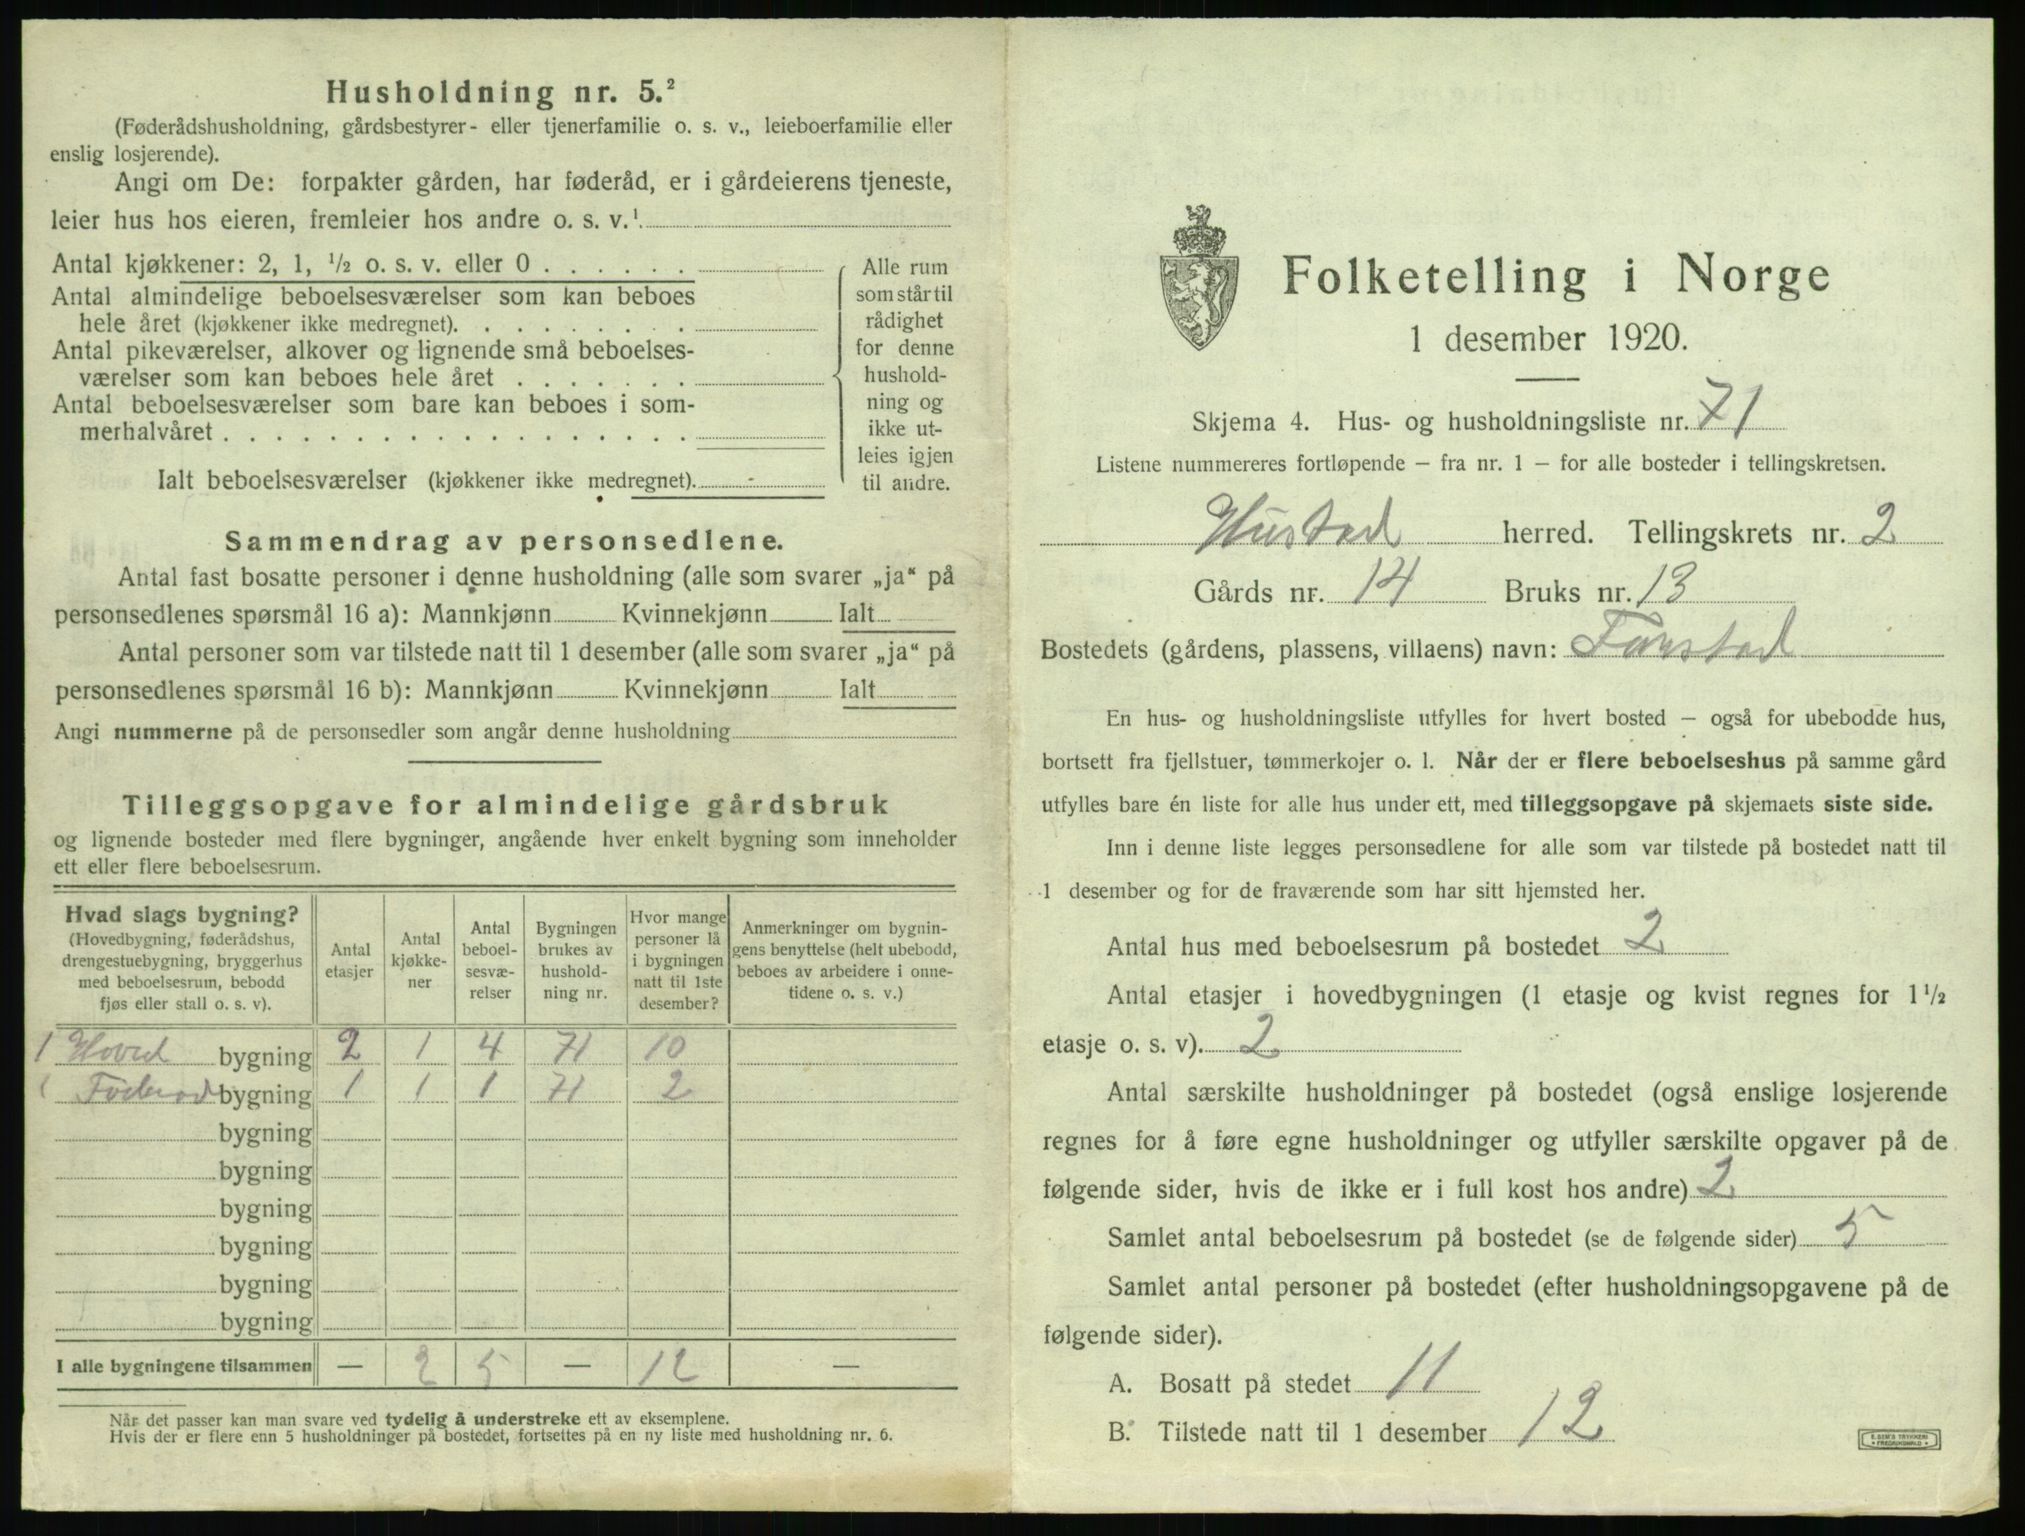 Husholdning nr. 5.²
(Føderådshusholdning, gårdsbestyrer- eller tjenerfamilie o. s. v., leieboerfamilie eller
enslig losjerende).
Angi om De: forpakter gården, har føderåd, er i gårdeierens tjeneste,
leier hus hos eieren, fremleier hos andre o. s. v.¹
Antal kjøkkener: 2, 1, ½ o. s. v. eller 0 . . . . . .
Antal almindelige beboelsesværelser som kan beboes
hele året (kjøkkener ikke medregnet). . . . . . . . .
Antal pikeværelser, alkover og lignende små beboelses-
værelser som kan beboes hele året . . . . . . .
Antal beboelsesværelser som bare kan beboes i som-
merhalvåret . . . . . . . . . . . . . . . . . .
Ialt beboelsesværelser (kjøkkener ikke medregnet).
Alle rum
som står til
rådighet
for denne
hushold-
ning og
ikke ut-
leies igjen
til andre.
Sammendrag av personsedlene.
Antal fast bosatte personer i denne husholdning (alle som svarer „ja“ på
personsedlenes spørsmål 16 a): Mannkjønn Kvinnekjønn Ialt
Antal personer som var tilstede natt til 1 desember (alle som svarer „ja“ på
personsedlenes spørsmål 16 b): Mannkjønn Kvinnekjønn Ialt
Angi nummerne på de personsedler som angår denne husholdning
Tilleggsopgave for almindelige gårdsbruk
og lignende bosteder med flere bygninger, angående hver enkelt bygning som inneholder
ett eller flere beboelsesrum.
Hvad slags bygning?
(Hovedbygning, føderådshus,
drengestuebygning, bryggerhus
med beboelsesrum, bebodd
fjøs eller stall o. s. v).
Antal
etasjer
Antal
kjøkke-
ner
Antal
beboel-
sesvæ-
relser
Bygningen
brukes av
hushold-
ning nr.
Hvor mange
personer lå
i bygningen
natt til 1ste
desember?
Anmerkninger om bygnin-
gens benyttelse (helt ubebodd,
beboes av arbeidere i onne-
tidene o. s. v.)
1 Hoved bygning 2 1 4 71 10
1 Föderod bygning 1 1 1 71 2
bygning
bygning
bygning
bygning
bygning
bygning
I alle bygningene tilsammen — 2 5 — 12 —
Når det passer kan man svare ved tydelig å understreke ett av eksemplene.
Hvis der er flere enn 5 husholdninger på bostedet, fortsettes på en ny liste med husholdning nr. 6.
Folketelling i Norge
1 desember 1920.
Skjema 4. Hus- og husholdningsliste nr. 71
Listene nummereres fortløpende – fra nr. 1 – for alle bosteder i tellingskretsen.
Hustad herred. Tellingskrets nr. 2
Gårds nr. 14 Bruks nr. 13
Bostedets (gårdens, plassens, villaens) navn: Farstad
En hus- og husholdningsliste utfylles for hvert bosted – også for ubebodde hus,
bortsett fra fjellstuer, tømmerkojer o. l. Når der er flere beboelseshus på samme gård
utfylles bare én liste for alle hus under ett, med tilleggsopgave på skjemaets siste side.
Inn i denne liste legges personsedlene for alle som var tilstede på bostedet natt til
1 desember og for de fraværende som har sitt hjemsted her.
Antal hus med beboelsesrum på bostedet 2
Antal etasjer i hovedbygningen (1 etasje og kvist regnes for 1½
etasje o. s. v). 2
Antal særskilte husholdninger på bostedet (også enslige losjerende
regnes for å føre egne husholdninger og utfyller særskilte opgaver på de
følgende sider, hvis de ikke er i full kost hos andre) 2
Samlet antal beboelsesrum på bostedet (se de følgende sider) 5
Samlet antal personer på bostedet (efter husholdningsopgavene på de
følgende sider).
A. Bosatt på stedet 11
B. Tilstede natt til 1 desember 12
E. SEM'S TRYKKERI
FREDRIKSHALD